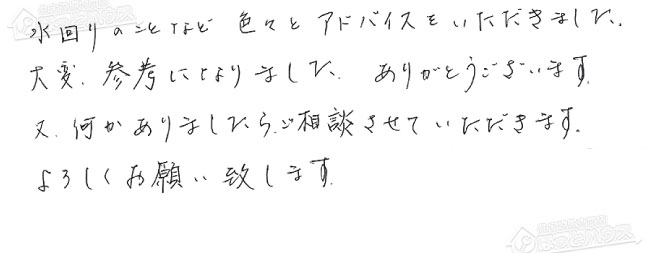 水回りのことなど色々とアドバイスをいただきました。
大変、参考になりました。ありがとうございます。
又、何かありましたら、ご相談させていただきます。
よろしくお願い致します。